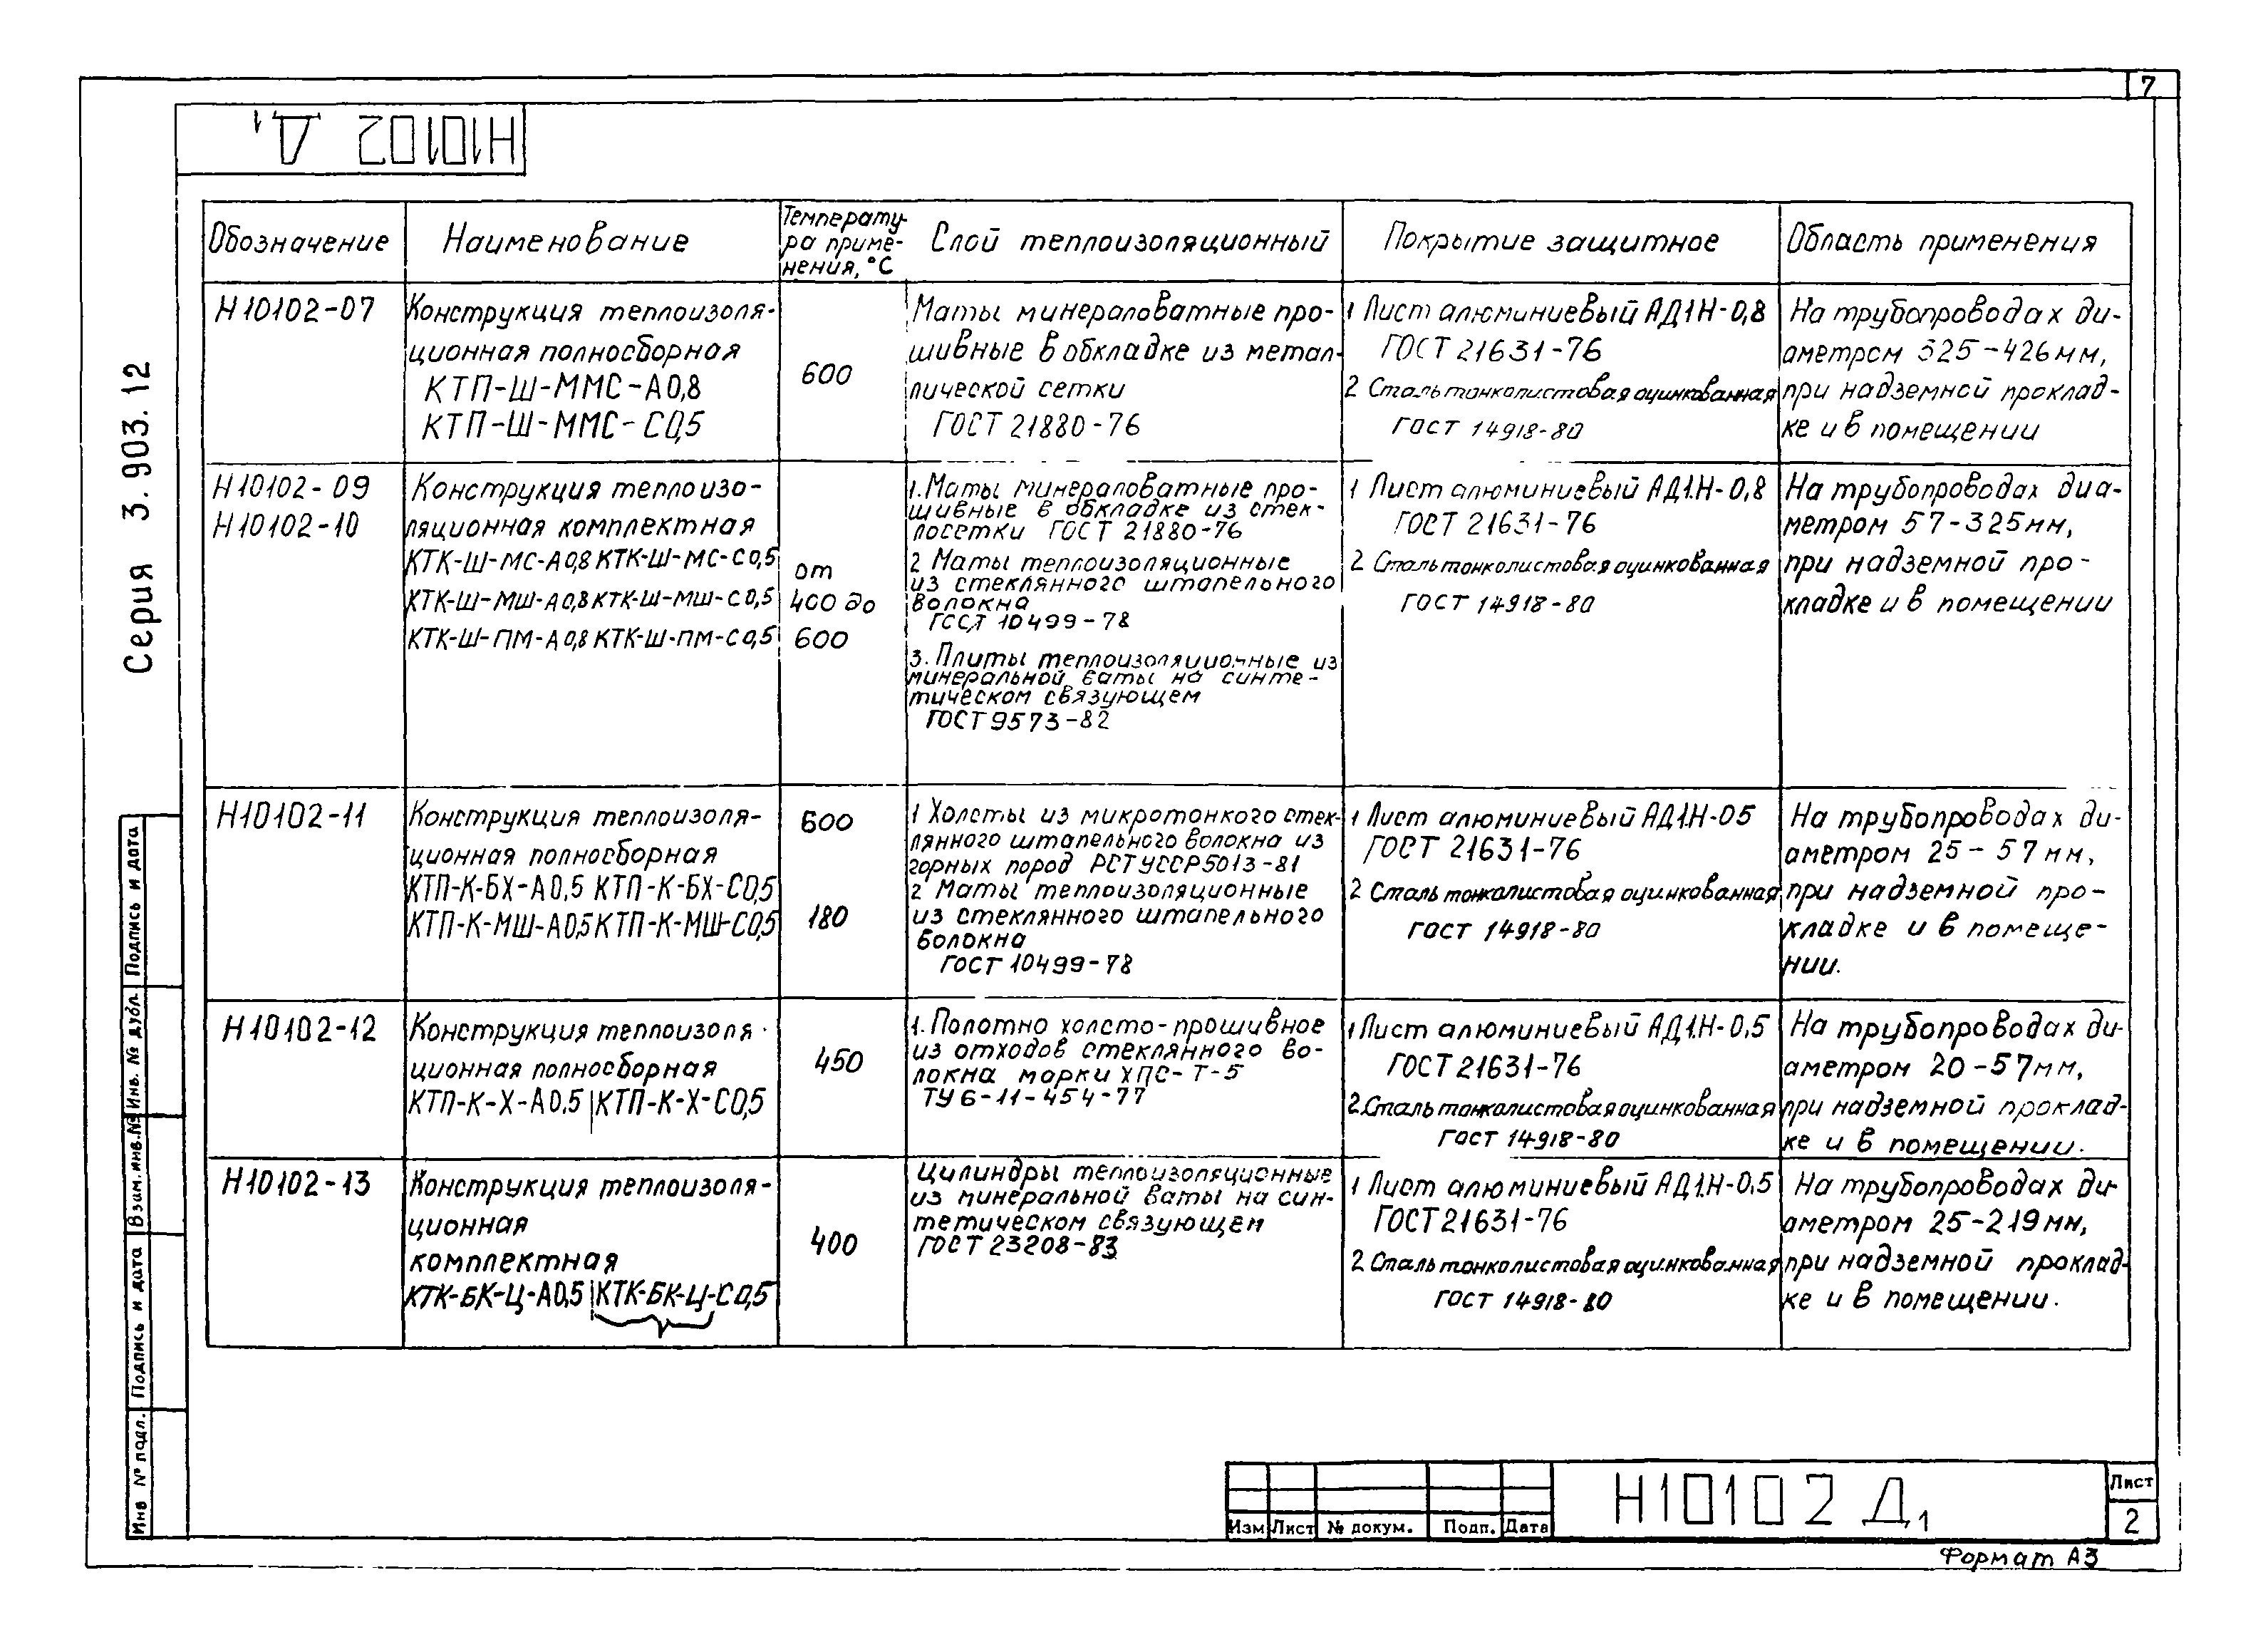 7
Н10102 Д1
Серия 3.903.12
Обозначение
Наименование
Температу-
ра приме-
нения, °С
Слой теплоизоляционный
Покрытие защитное
Область применения
Н10102-07
Конструкция теплоизоля-
ционная полносборная
КТП-Ш-ММС-А0,8
КТП-Ш-ММС-С0,5
600
Маты минераловатные про-
шивные в обкладке из метал-
лической сетки
ГОСТ 21880-76
1 Лист алюминиевый АД1Н-0,8
ГОСТ 21631-76
2 Сталь тонколистовая оцинкованная
ГОСТ 14918-80
На трубопроводах ди-
аметром 325-426мм,
при надземной проклад-
ке и в помещении
Н10102-09
Н10102-10
Конструкция теплоизо-
ляционная комплектная
КТК-Ш-МС-А0,8 КТК-Ш-МС-С0,5
КТК-Ш-МШ-А0,8 КТК-Ш-МШ-С0,5
КТК-Ш-ПМ-А0,8 КТК-Ш-ПМ-С0,5
от
400 до
600
1. Маты минераловатные про-
шивные в обкладке из стек-
лосетки ГОСТ 21880-76
2 Маты теплоизоляционные
из стеклянного штапельного
волокна
ГОСТ 10499-78
3. Плиты теплоизоляционные из
минеральной ваты на синте-
тическом связующем
ГОСТ 9573-82
1 Лист алюминиевый АД1.Н-0,8
ГОСТ 21631-76
2 Сталь тонколистовая оцинкованная
ГОСТ 14918-80
На трубопроводах диа-
метром 57-325мм,
при надземной про-
кладке и в помещении
Н10102-11
Конструкция теплоизоля-
ционная полносборная
КТП-К-БХ-А0,5 КТП-К-БХ-С0,5
КТП-К-МШ-А0,5 КТП-К-МШ-С0,5
600
180
1 Холсты из микротонкого стек-
лянного штапельного волокна из
горных пород РСТ УССР 5013-81
2 Маты теплоизоляционные
из стеклянного штапельного
волокна
ГОСТ 10499-78
1 Лист алюминиевый АД1.Н-05
ГОСТ 21631-76
2 Сталь тонколистовая оцинкованная
ГОСТ 14918-80
На трубопроводах ди-
аметром 25-57мм,
при надземной про-
кладке и в помеще-
нии.
Н10102-12
Конструкция теплоизоля-
ционная полносборная
КТП-К-Х-А0,5 | КТП-К-Х-С0,5
450
1. Полотно холсто-прошивное
из отходов стеклянного во-
локна марки ХПС-Т-5
ТУ 6-11-454-77
1 Лист алюминиевый АД1.Н-0,5
ГОСТ 21631-76
2. Сталь тонколистовая оцинкованная
ГОСТ 14918-80
На трубопроводах ди-
аметром 20-57мм,
при надземной проклад-
ке и в помещении.
Н10102-13
Конструкция теплоизоля-
ционная
комплектная
КТК-БК-Ц-А0,5 | КТК-БК-Ц-С0,5
400
Цилиндры теплоизоляционные
из минеральной ваты на син-
тетическом связующем
ГОСТ 23208-83
1 Лист алюминиевый АД1.Н-0,5
ГОСТ 21631-76
2 Сталь тонколистовая оцинкованная
ГОСТ 14918-80
На трубопроводах ди-
аметром 25-219мм,
при надземной проклад-
ке и в помещении.
Инв № подл.
Подпись и дата
Взам. инв. №
Инв. № дубл.
Подпись и дата
Изм Лист № докум. Подп. Дата
Н10102 Д1
Лист
2
Формат А3